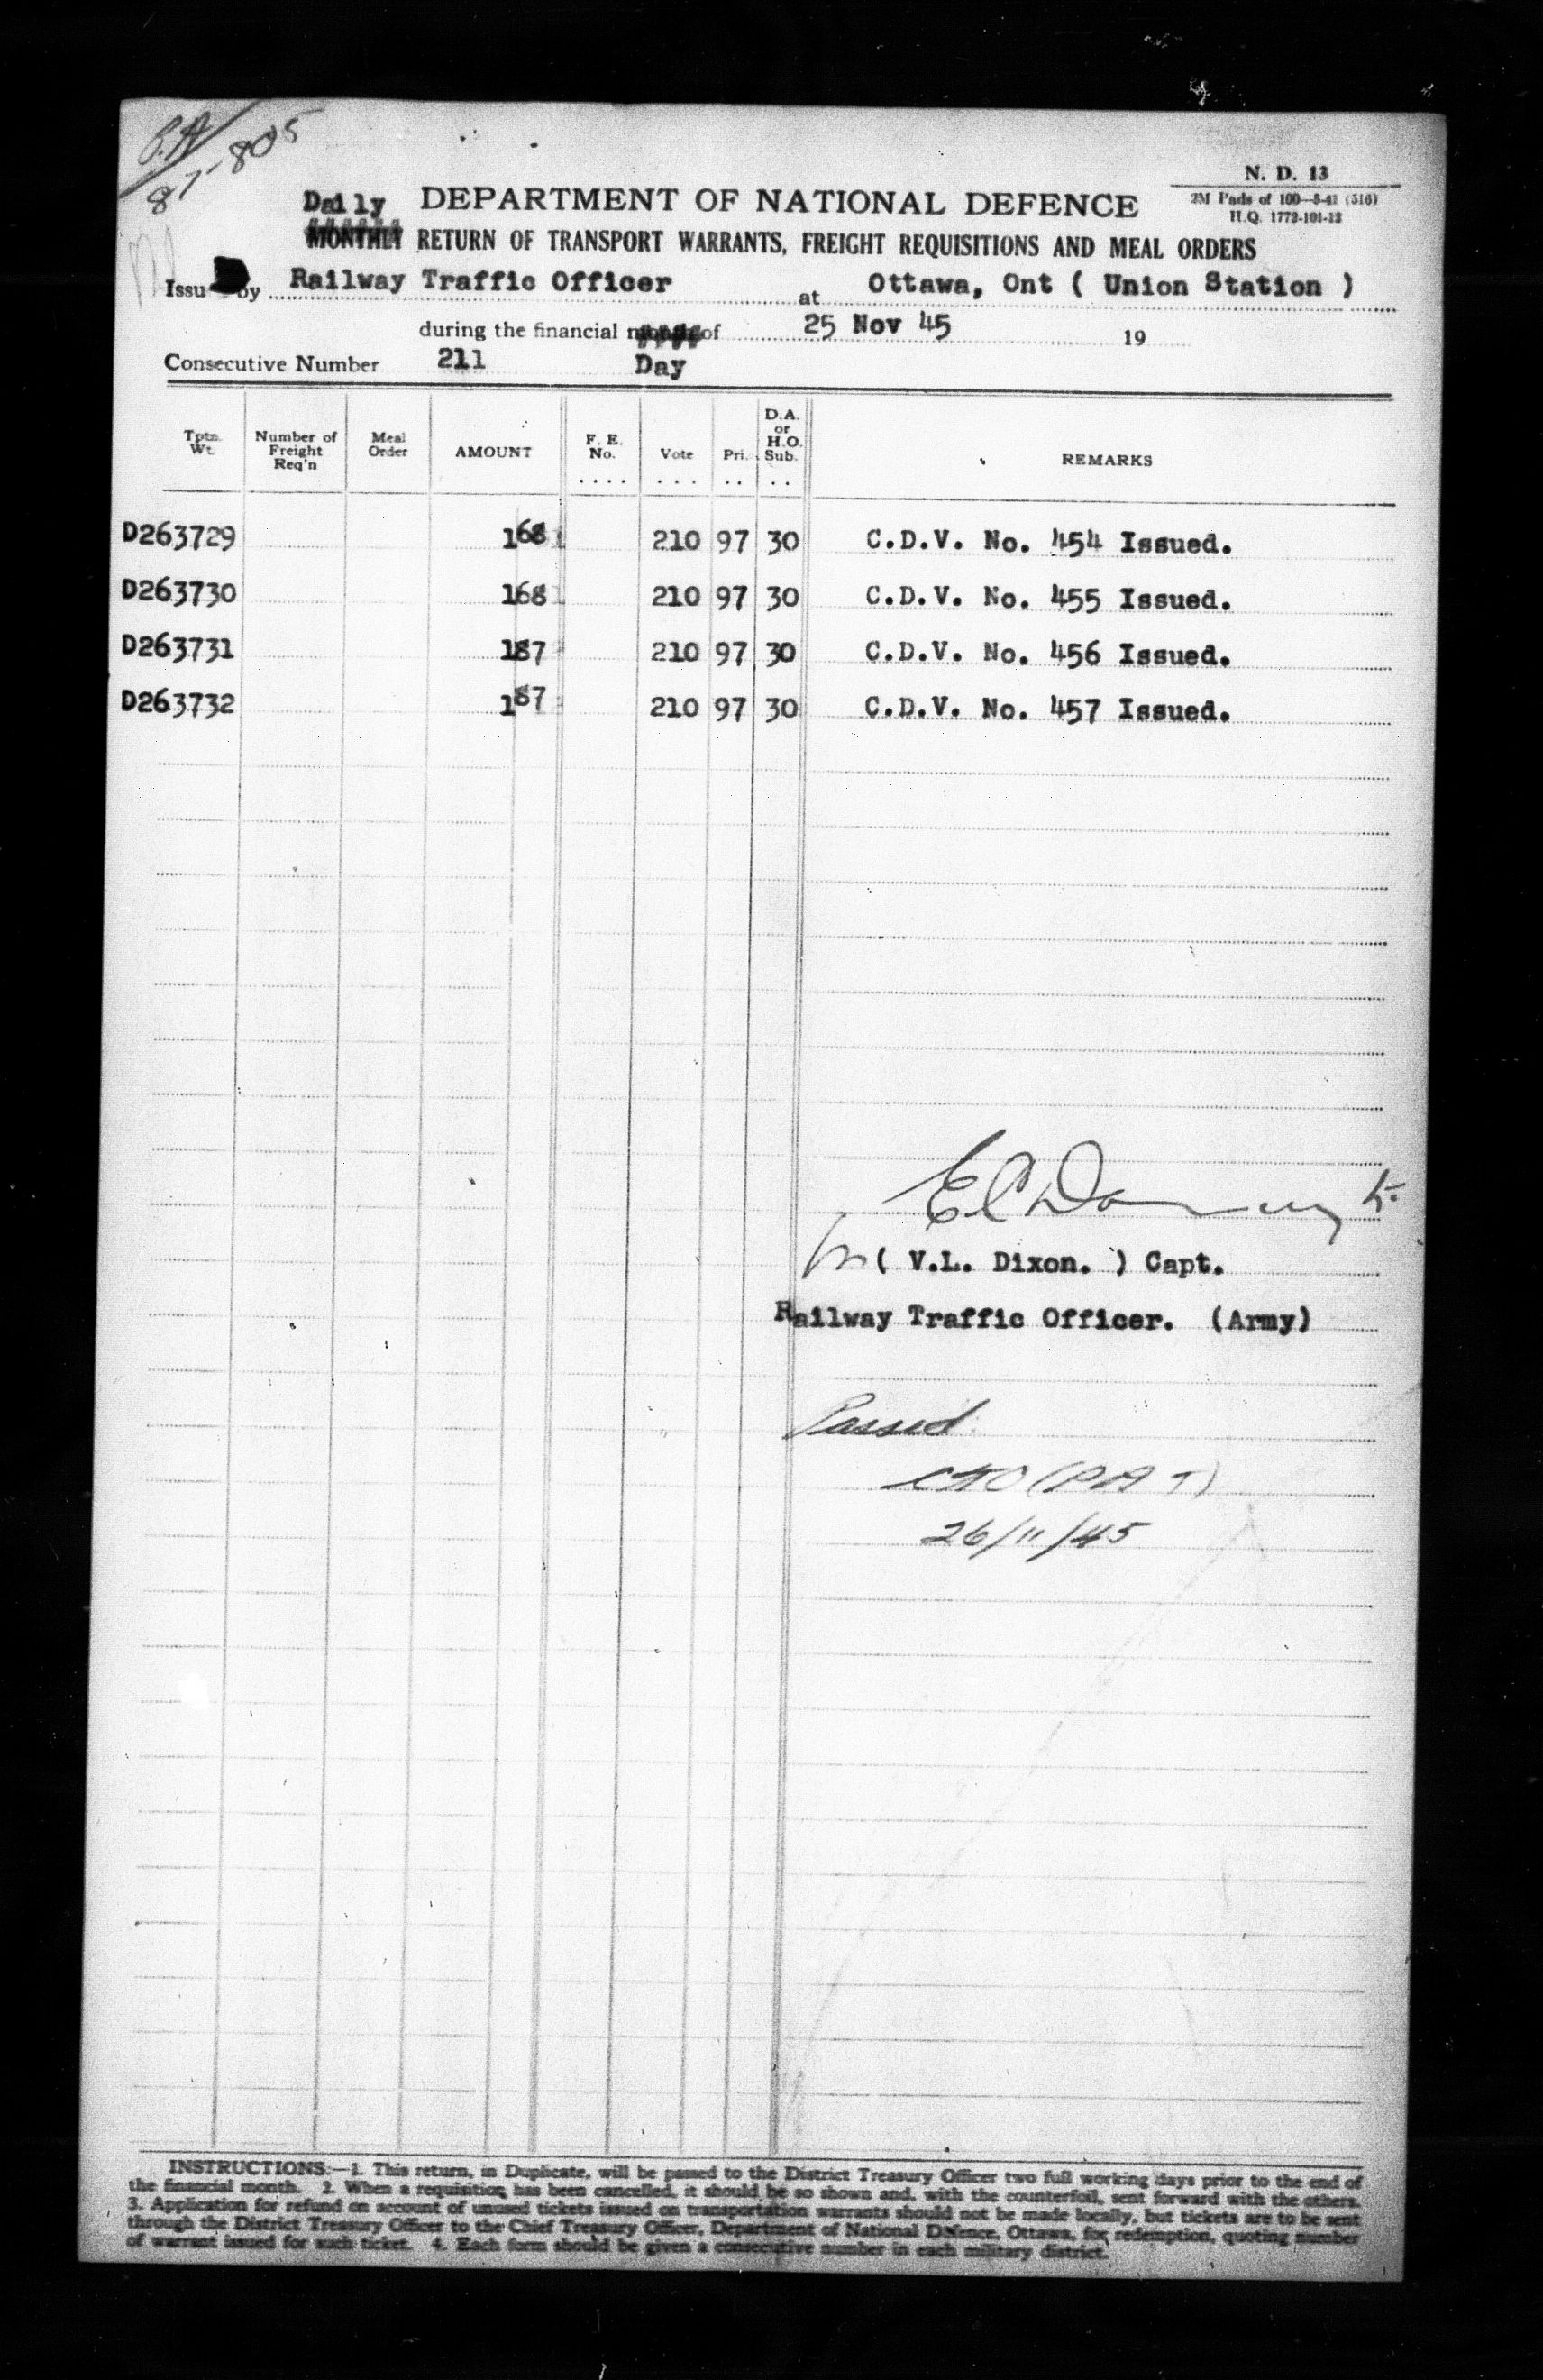 P.A
87-805
N. D. 13
2M Pads of 100—5-41 (516)
H.Q. 1772-101-13
Daily DEPARTMENT OF NATIONAL DEFENCE
MONTHLY RETURN OF TRANSPORT WARRANTS, FREIGHT REQUISITIONS AND MEAL ORDERS
Issu by Railway Traffic Officer at Ottawa, Ont ( Union Station )
during the financial month of 25 Nov 45 19
Consecutive Number 211 Day
Tptn. Wt. Number of Freight Req'n Meal Order AMOUNT F. E. No. Vote Pri. D.A. or H.O. Sub. REMARKS
D263729 168 210 97 30 C.D.V. No. 454 Issued.
D263730 168 210 97 30 C.D.V. No. 455 Issued.
D263731 187 210 97 30 C.D.V. No. 456 Issued.
D263732 187 210 97 30 C.D.V. No. 457 Issued.
for ( V.L. Dixon. ) Capt.
Railway Traffic Officer. (Army)
Passed
26/11/45
INSTRUCTIONS:—1. This return, in Duplicate, will be passed to the District Treasury Officer two full working days prior to the end of
the financial month. 2. When a requisition has been cancelled, it should be so shown and, with the counterfoil, sent forward with the others.
3. Application for refund on account of unused tickets issued on transportation warrants should not be made locally, but tickets are to be sent
through the District Treasury Officer to the Chief Treasury Officer, Department of National Defence, Ottawa, for redemption, quoting number
of warrant issued for such ticket. 4. Each form should be given a consecutive number in each military district.